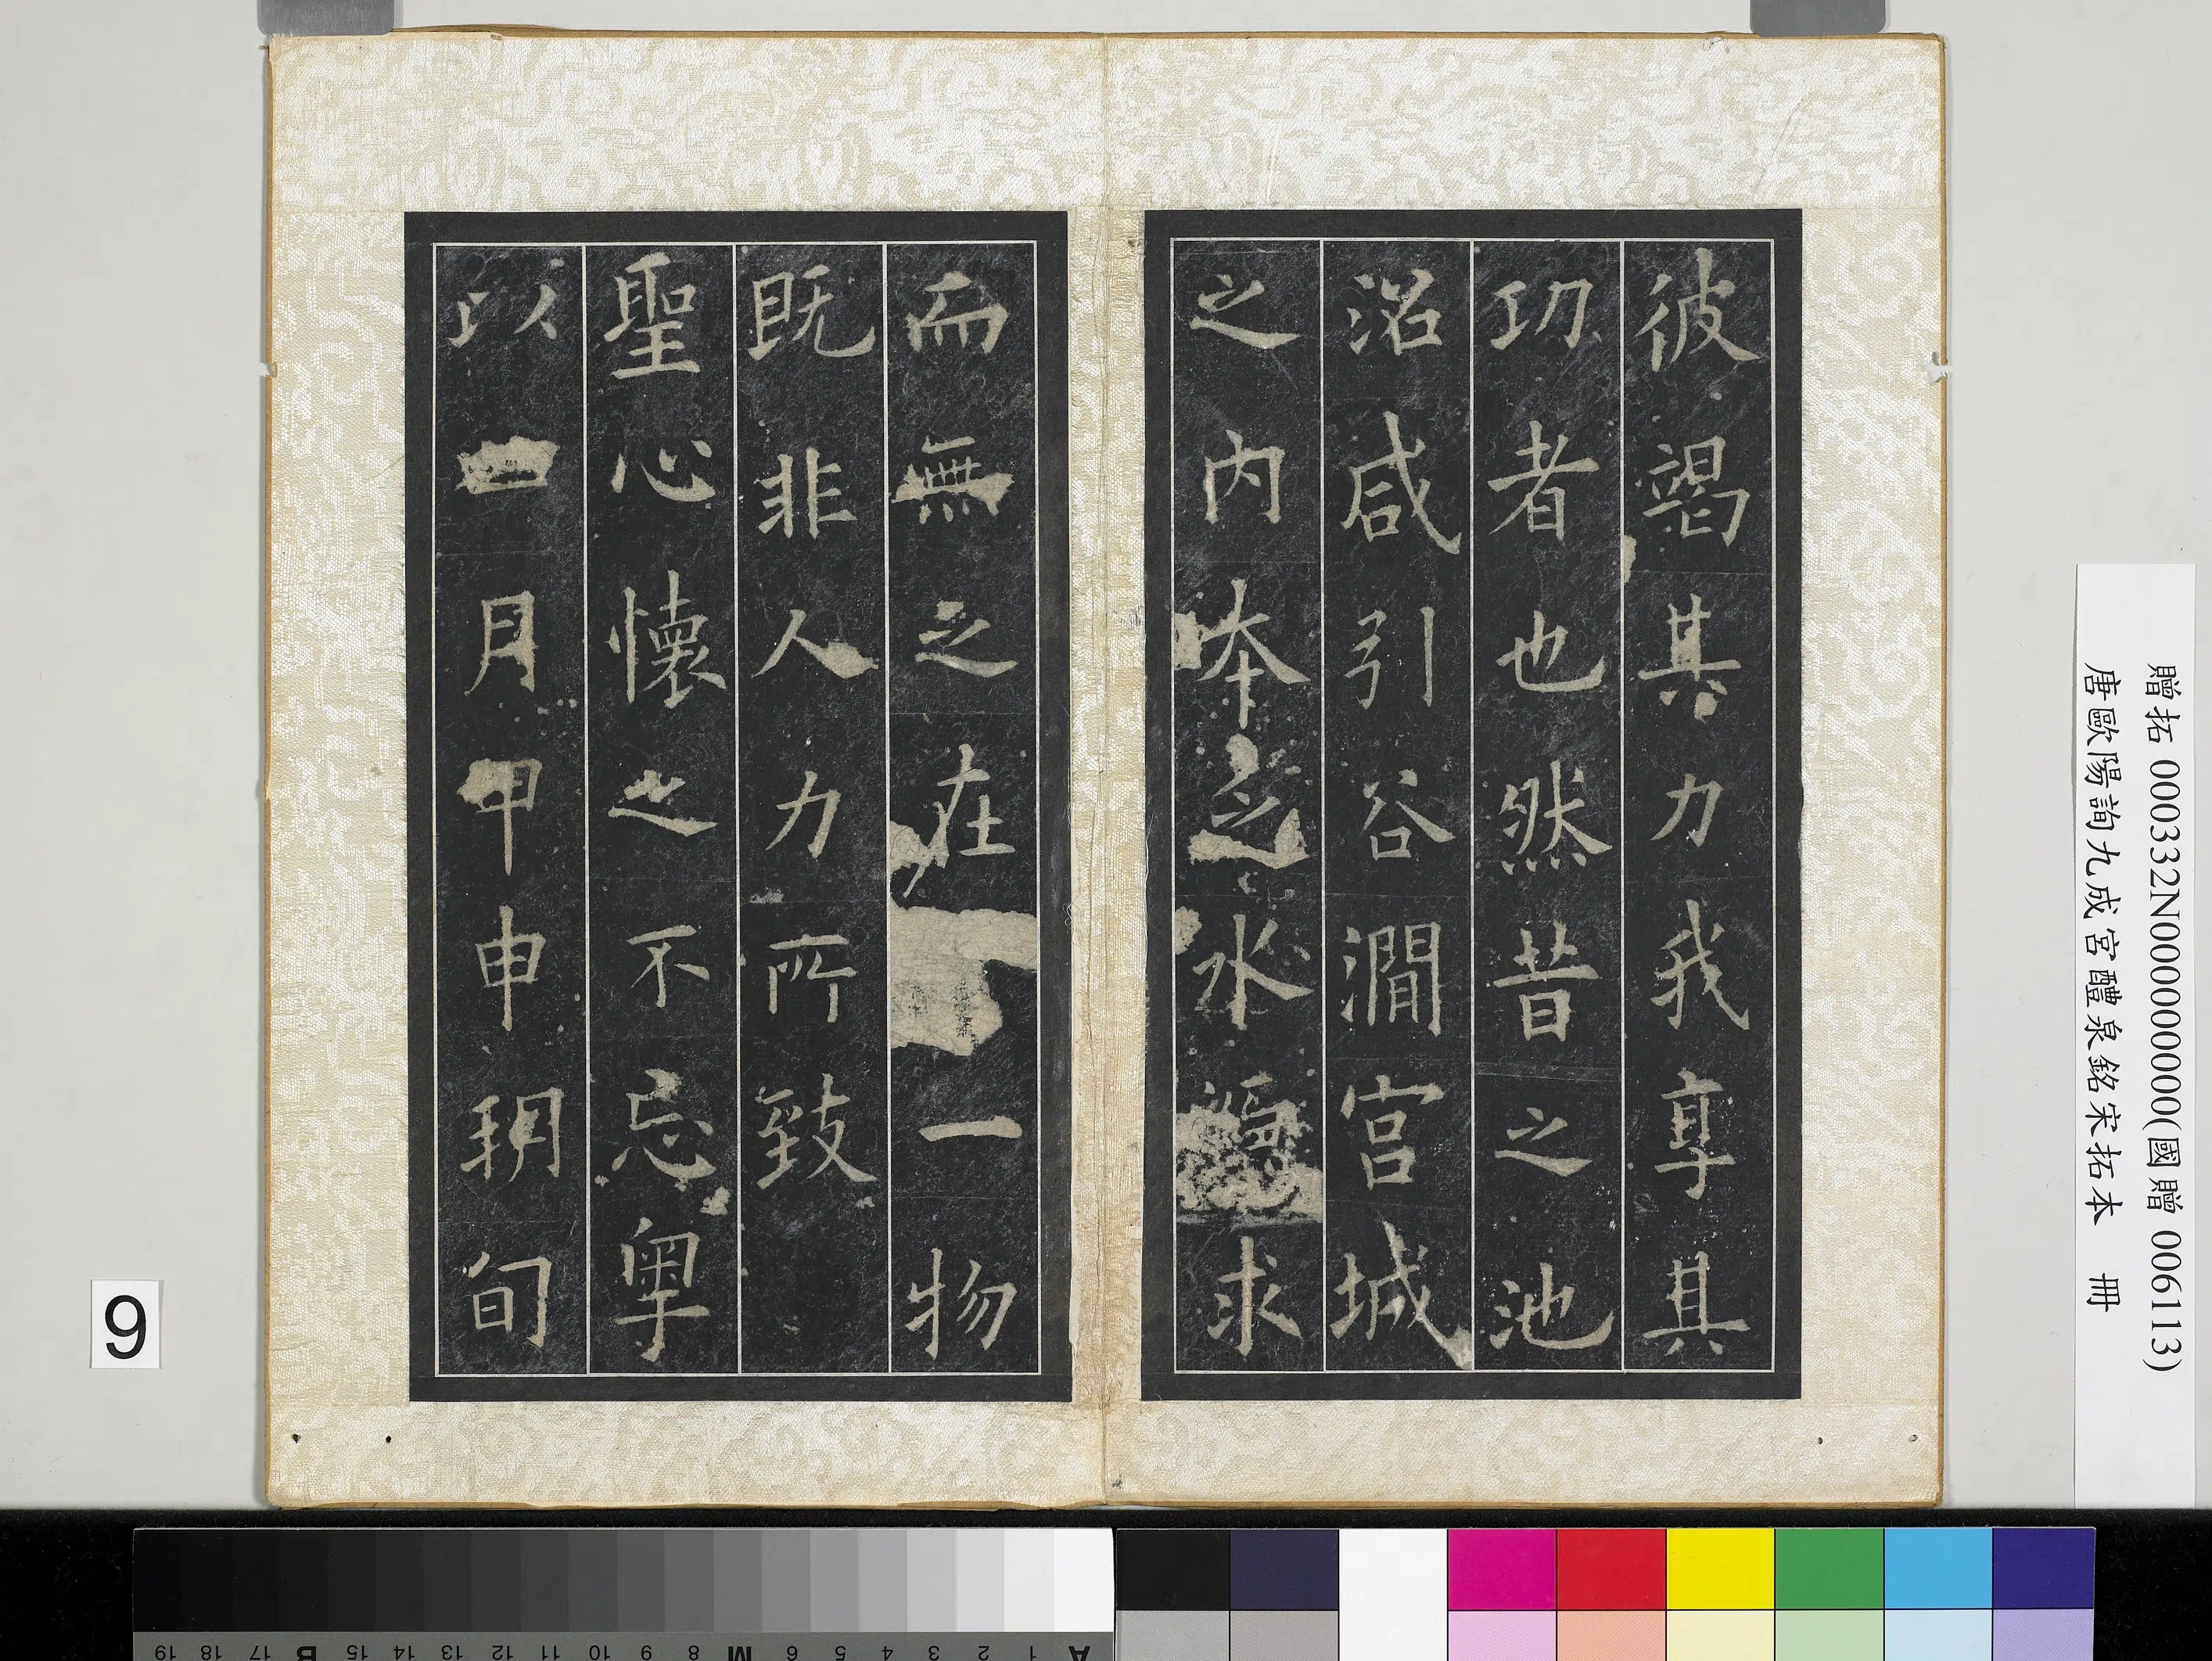 彼竭其力我享其
功者也然昔之池
沼咸引谷澗宮城
之內本乏水源求
而無之在一物
既非人力所致
聖心懷之不忘粵
以四月甲申朔旬
贈拓 000332N000000000(國贈 006113)
唐歐陽詢九成宮醴泉銘宋拓本 冊
9
A 1 2 3 4 5 6 M 8 9 10 11 12 13 14 15 B 17 18 19